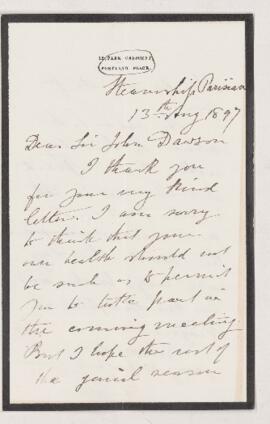 12, PARK CRESCENT,
PORTLAND PLACE.
Steamship Parisian
13th Aug 1897
Dear Sir John Dawson
I thank you
for your very kind
letter. I am sorry
to think that your
own health should not
be such as to permit
you to take part in
the coming meeting
But I hope the rest of
the genial season